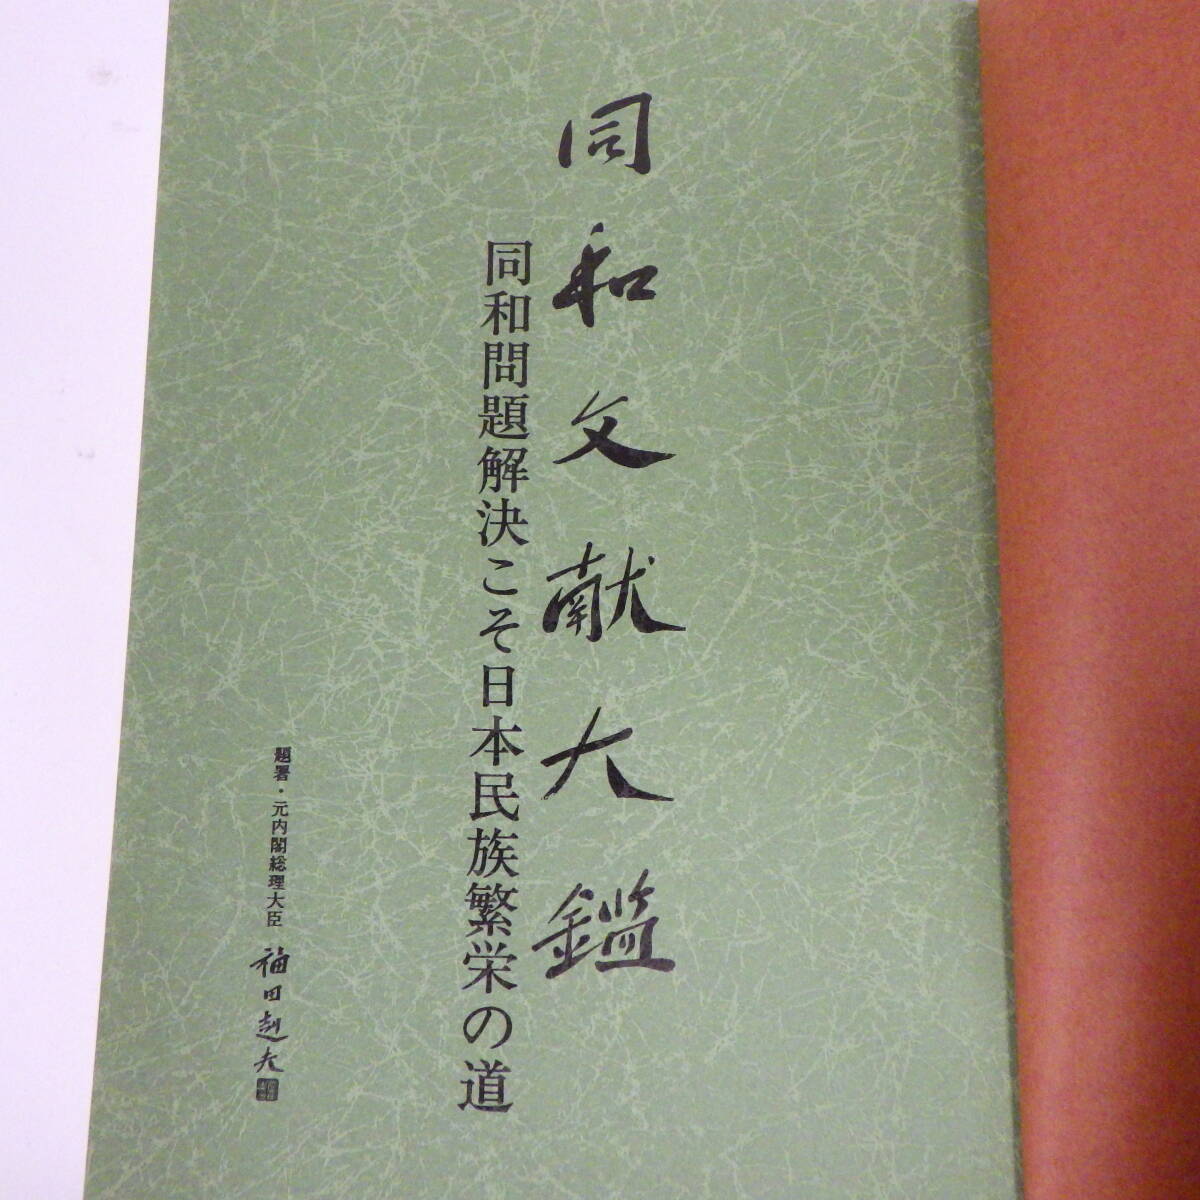 同和文献大鑑
同和問題解決こそ日本民族繁栄の道
題署・元内閣総理大臣 福田赳夫